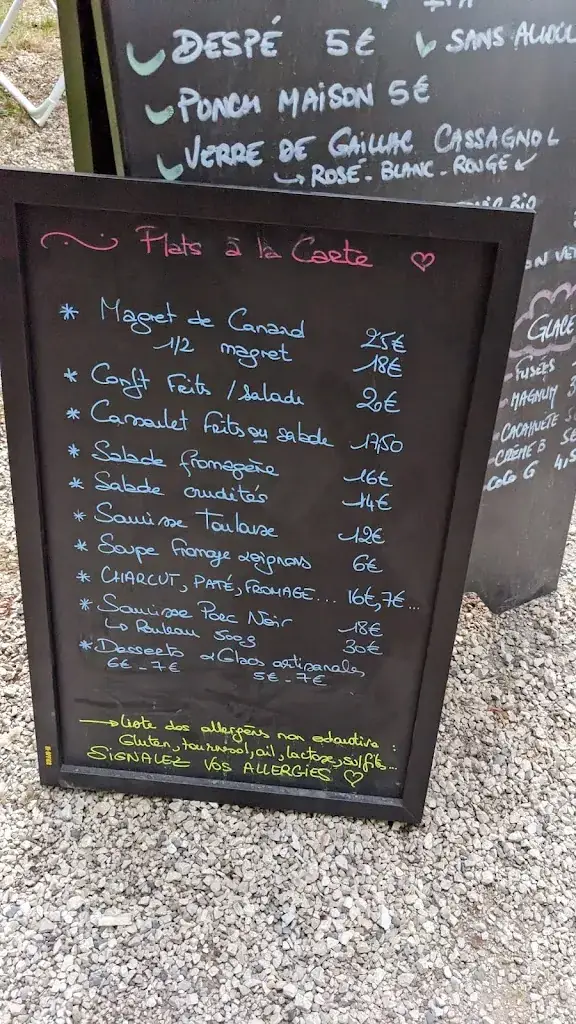 DESPÉ 5€ SANS ALCOOL
PONCH MAISON 5€
VERRE DE GAILLAC CASSAGNOL
ROSÉ - BLANC - ROUGE
BIO
GLACE
- FUSÉES
- MAGNUM 3
- CACAHUÈTE
- CRÈME B
COCO G 4,5
Plats à la Carte
* Magret de Canard 25€
1/2 magret 18€
* Confit Frits / salade 20€
* Cassoulet frits ou salade 17,50
* Salade fromagère 16€
* Salade crudités 14€
* Saucisse Toulouse 12€
* Soupe fromage & oignons 6€
* CHARCUT, PATÉ, FROMAGE... 16€, 7€...
* Saucisse Porc Noir 18€
Lo Rouleau 500g 30€
* Desserts & Glaces artisanales
6€ - 7€ 5€ - 7€
→ Liste des allergens non exhaustive :
Gluten, tournesol, ail, lactose, sulfits...
SIGNALEZ VOS ALLERGIES